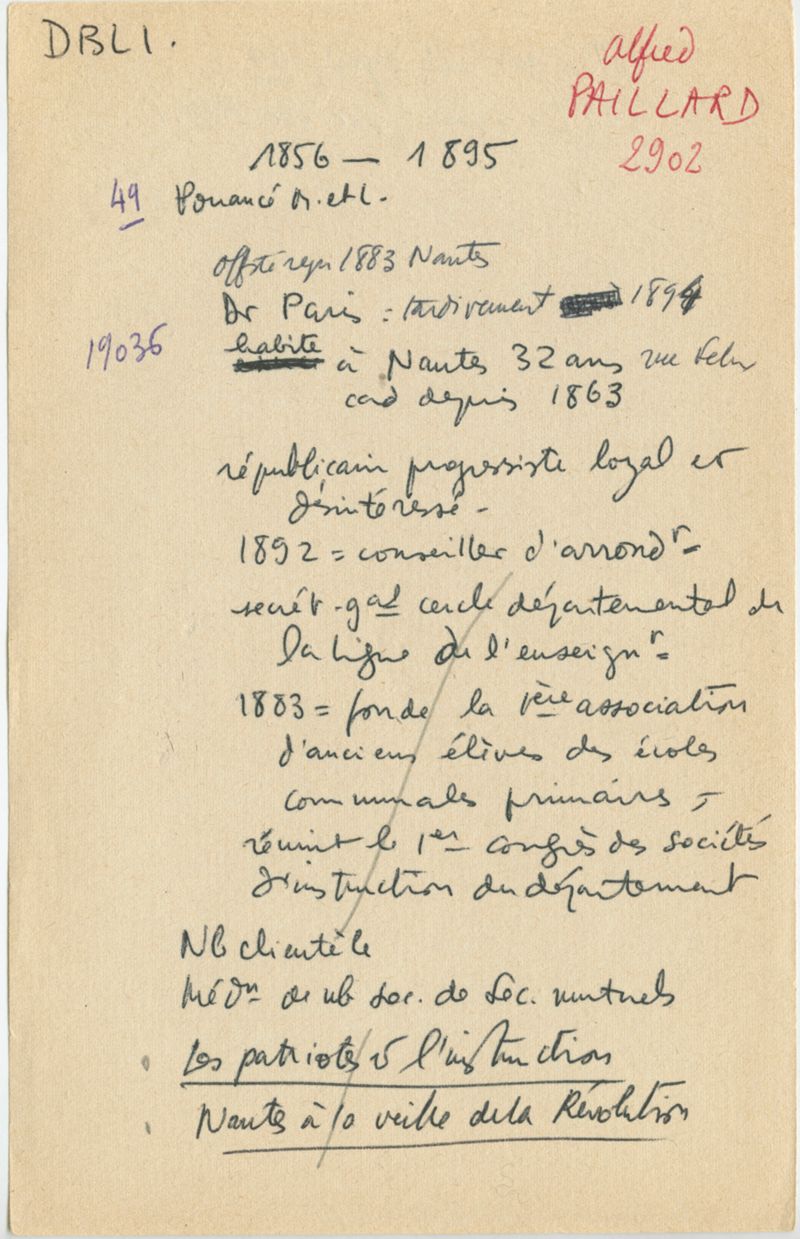 DBLI.
Alfred
PAILLARD
2902
1856 — 1895
49 Pouancé M. et L.
off sté reçu 1883 Nantes
Dr Paris : tardivement 1894
19036
habite à Nantes 32 ans rue
cad depuis 1863
républicain progressiste loyal et
désintéressé -
1892 = conseiller d'arrondr -
secrét - gal cercle départemental de
la Ligue de l'enseignr =
1883 = fonde la 1ère association
d'anciens élèves des écoles
communales primaires -
réunit le 1er congrès des sociétés
d'instruction du département
Nb clientèle
Médn de nb soc. de Sec. mutuels
Les patriotes et l'instruction
Nantes à la veille de la Révolution